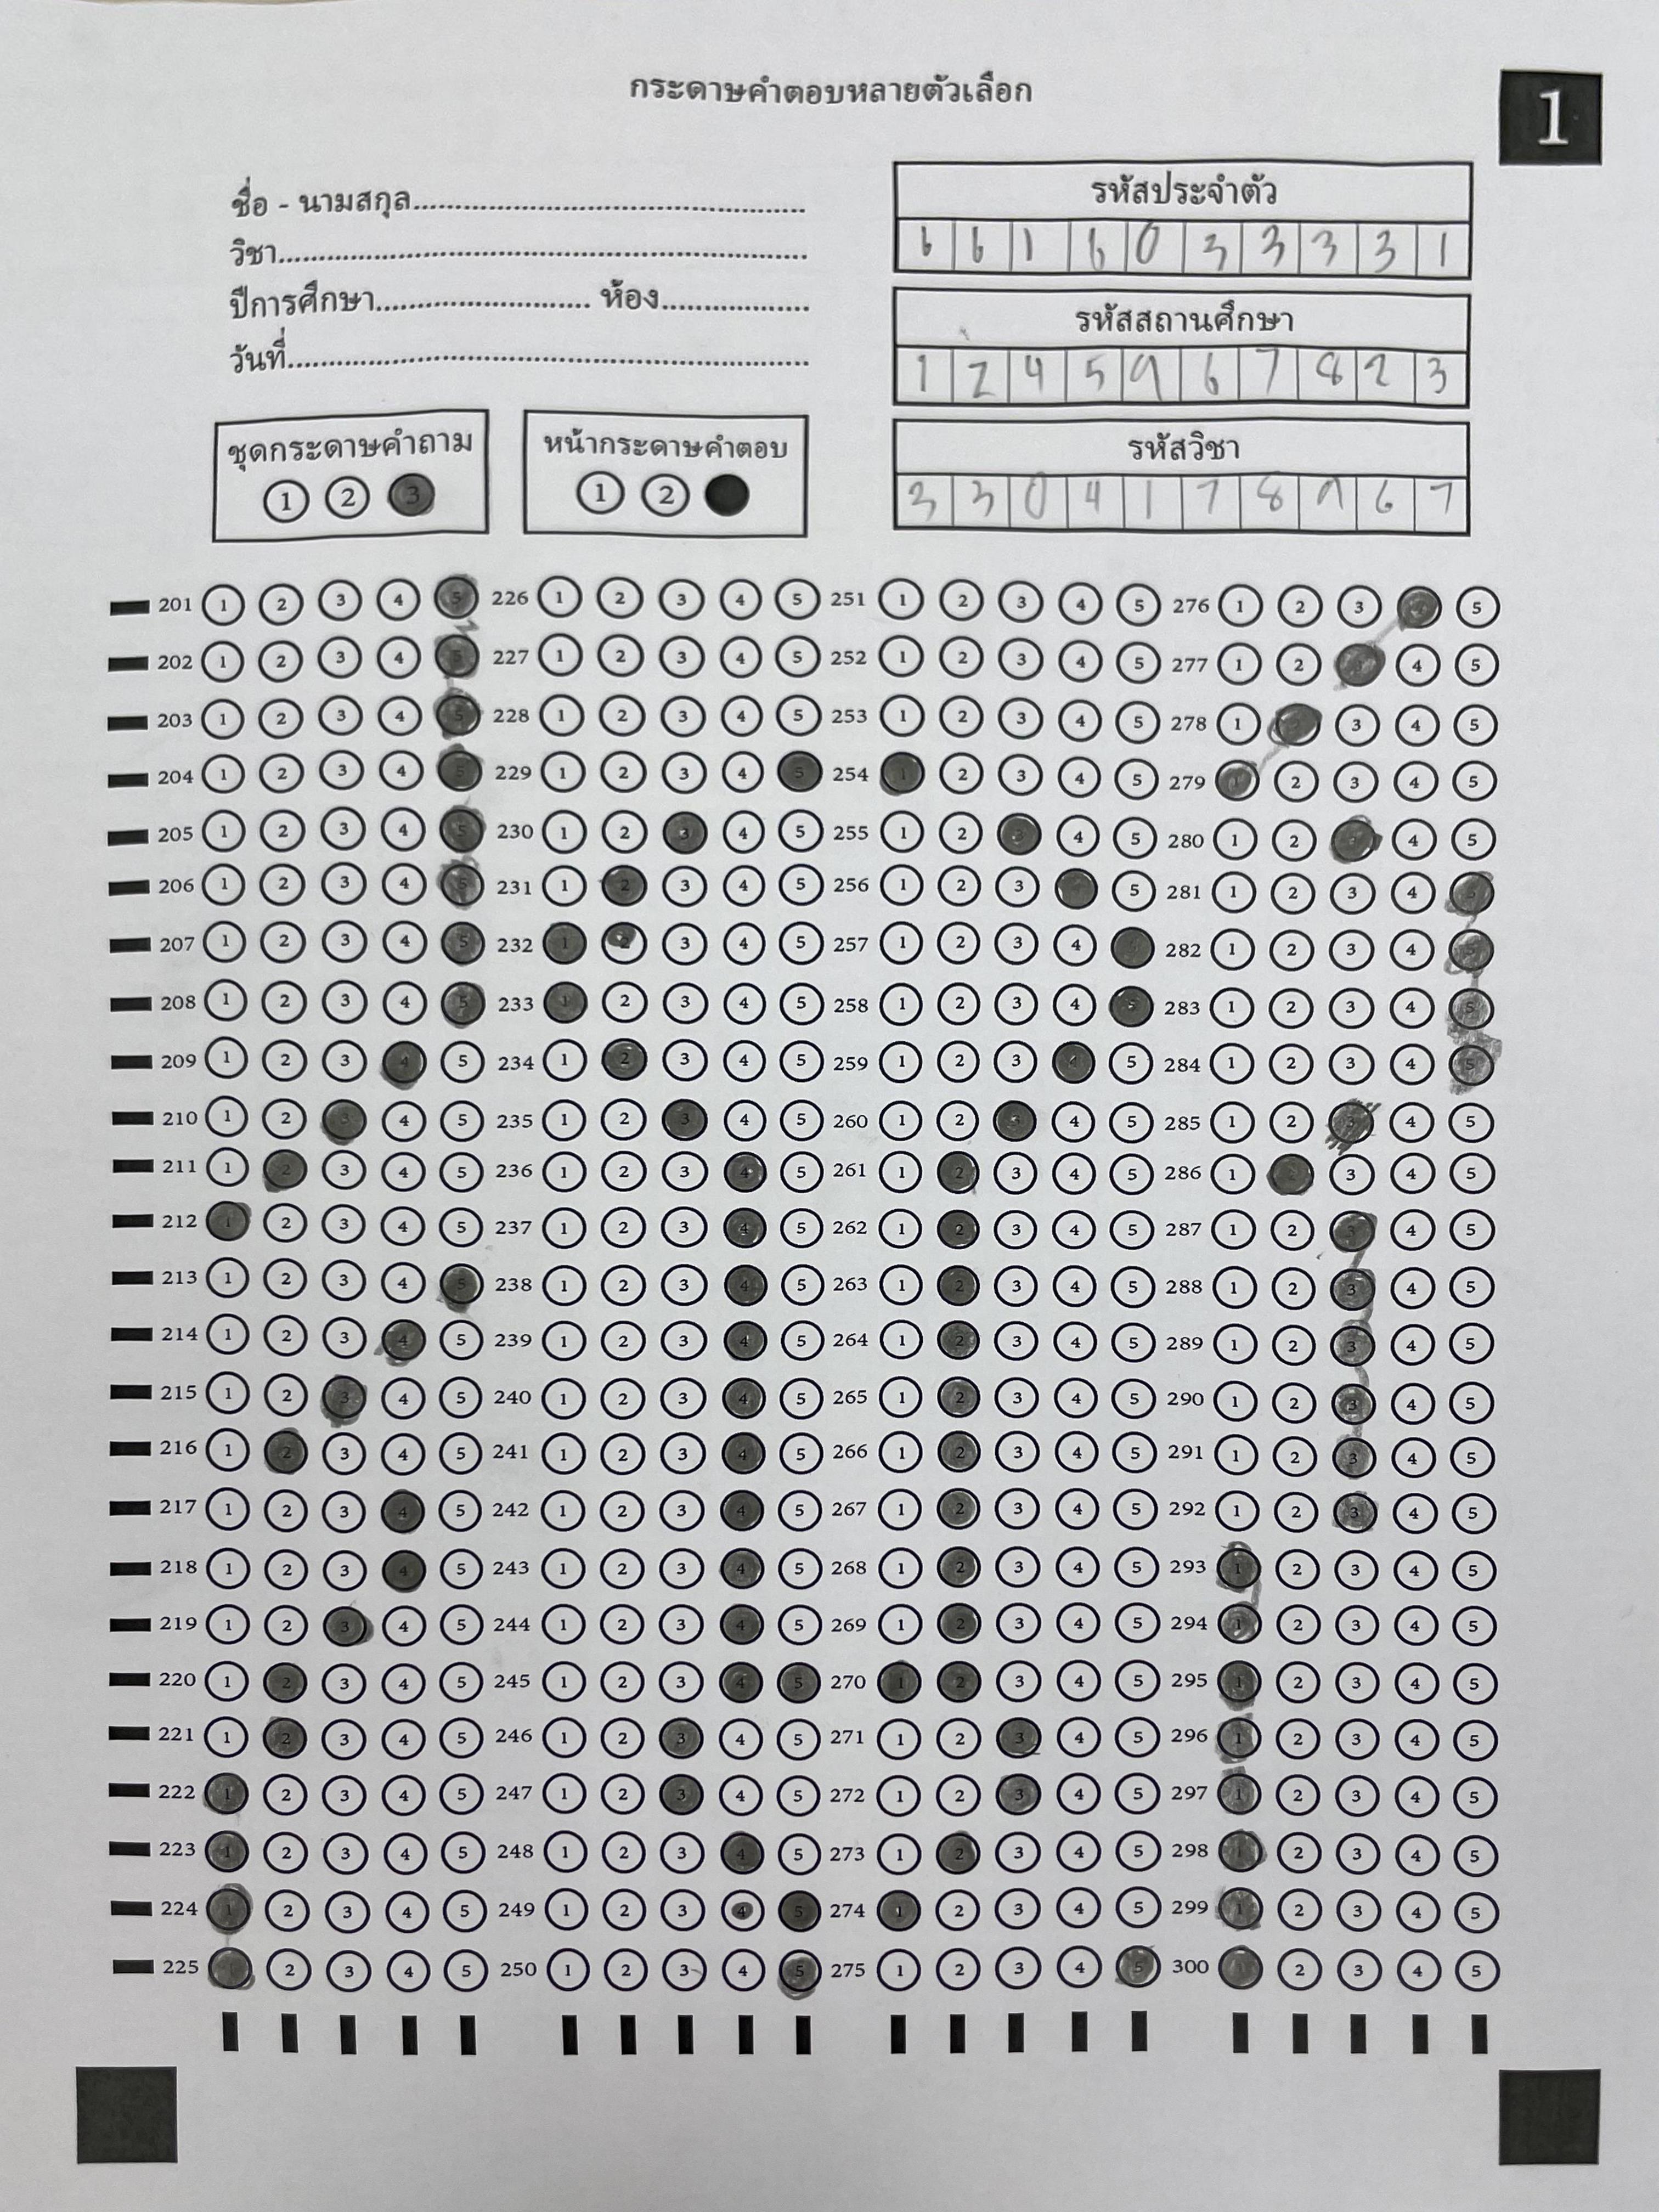 กระดาษคำตอบหลายตัวเลือก
1
ชื่อ - นามสกุล
วิชา
ปีการศึกษา ห้อง
วันที่
รหัสประจำตัว
6 6 1 6 0 3 3 3 3 1
รหัสสถานศึกษา
1 2 4 5 9 6 7 8 2 3
รหัสวิชา
3 3 0 4 1 7 8 9 6 7
ชุดกระดาษคำถาม
1 2 3
หน้ากระดาษคำตอบ
1 2
201 1 2 3 4 5 226 1 2 3 4 5 251 1 2 3 4 5 276 1 2 3 5
202 1 2 3 4 5 227 1 2 3 4 5 252 1 2 3 4 5 277 1 2 4 5
203 1 2 3 4 5 228 1 2 3 4 5 253 1 2 3 4 5 278 1 3 4 5
204 1 2 3 4 5 229 1 2 3 4 5 254 1 2 3 4 5 279 1 2 3 4 5
205 1 2 3 4 5 230 1 2 3 4 5 255 1 2 3 4 5 280 1 2 3 4 5
206 1 2 3 4 5 231 1 2 3 4 5 256 1 2 3 5 281 1 2 3 4 5
207 1 2 3 4 5 232 1 2 3 4 5 257 1 2 3 4 282 1 2 3 4 5
208 1 2 3 4 5 233 1 2 3 4 5 258 1 2 3 4 5 283 1 2 3 4 5
209 1 2 3 4 5 234 1 2 3 4 5 259 1 2 3 4 5 284 1 2 3 4 5
210 1 2 3 4 5 235 1 2 3 4 5 260 1 2 3 4 5 285 1 2 3 4 5
211 1 2 3 4 5 236 1 2 3 4 5 261 1 2 3 4 5 286 1 2 3 4 5
212 1 2 3 4 5 237 1 2 3 4 5 262 1 2 3 4 5 287 1 2 3 4 5
213 1 2 3 4 5 238 1 2 3 4 5 263 1 2 3 4 5 288 1 2 3 4 5
214 1 2 3 4 5 239 1 2 3 4 5 264 1 2 3 4 5 289 1 2 3 4 5
215 1 2 3 4 5 240 1 2 3 4 5 265 1 2 3 4 5 290 1 2 3 4 5
216 1 2 3 4 5 241 1 2 3 4 5 266 1 2 3 4 5 291 1 2 3 4 5
217 1 2 3 4 5 242 1 2 3 4 5 267 1 2 3 4 5 292 1 2 3 4 5
218 1 2 3 4 5 243 1 2 3 4 5 268 1 2 3 4 5 293 1 2 3 4 5
219 1 2 3 4 5 244 1 2 3 4 5 269 1 2 3 4 5 294 1 2 3 4 5
220 1 2 3 4 5 245 1 2 3 4 5 270 1 2 3 4 5 295 1 2 3 4 5
221 1 2 3 4 5 246 1 2 3 4 5 271 1 2 3 4 5 296 1 2 3 4 5
222 1 2 3 4 5 247 1 2 3 4 5 272 1 2 3 4 5 297 1 2 3 4 5
223 1 2 3 4 5 248 1 2 3 4 5 273 1 2 3 4 5 298 1 2 3 4 5
224 1 2 3 4 5 249 1 2 3 4 5 274 1 2 3 4 5 299 1 2 3 4 5
225 1 2 3 4 5 250 1 2 3 4 5 275 1 2 3 4 5 300 2 3 4 5